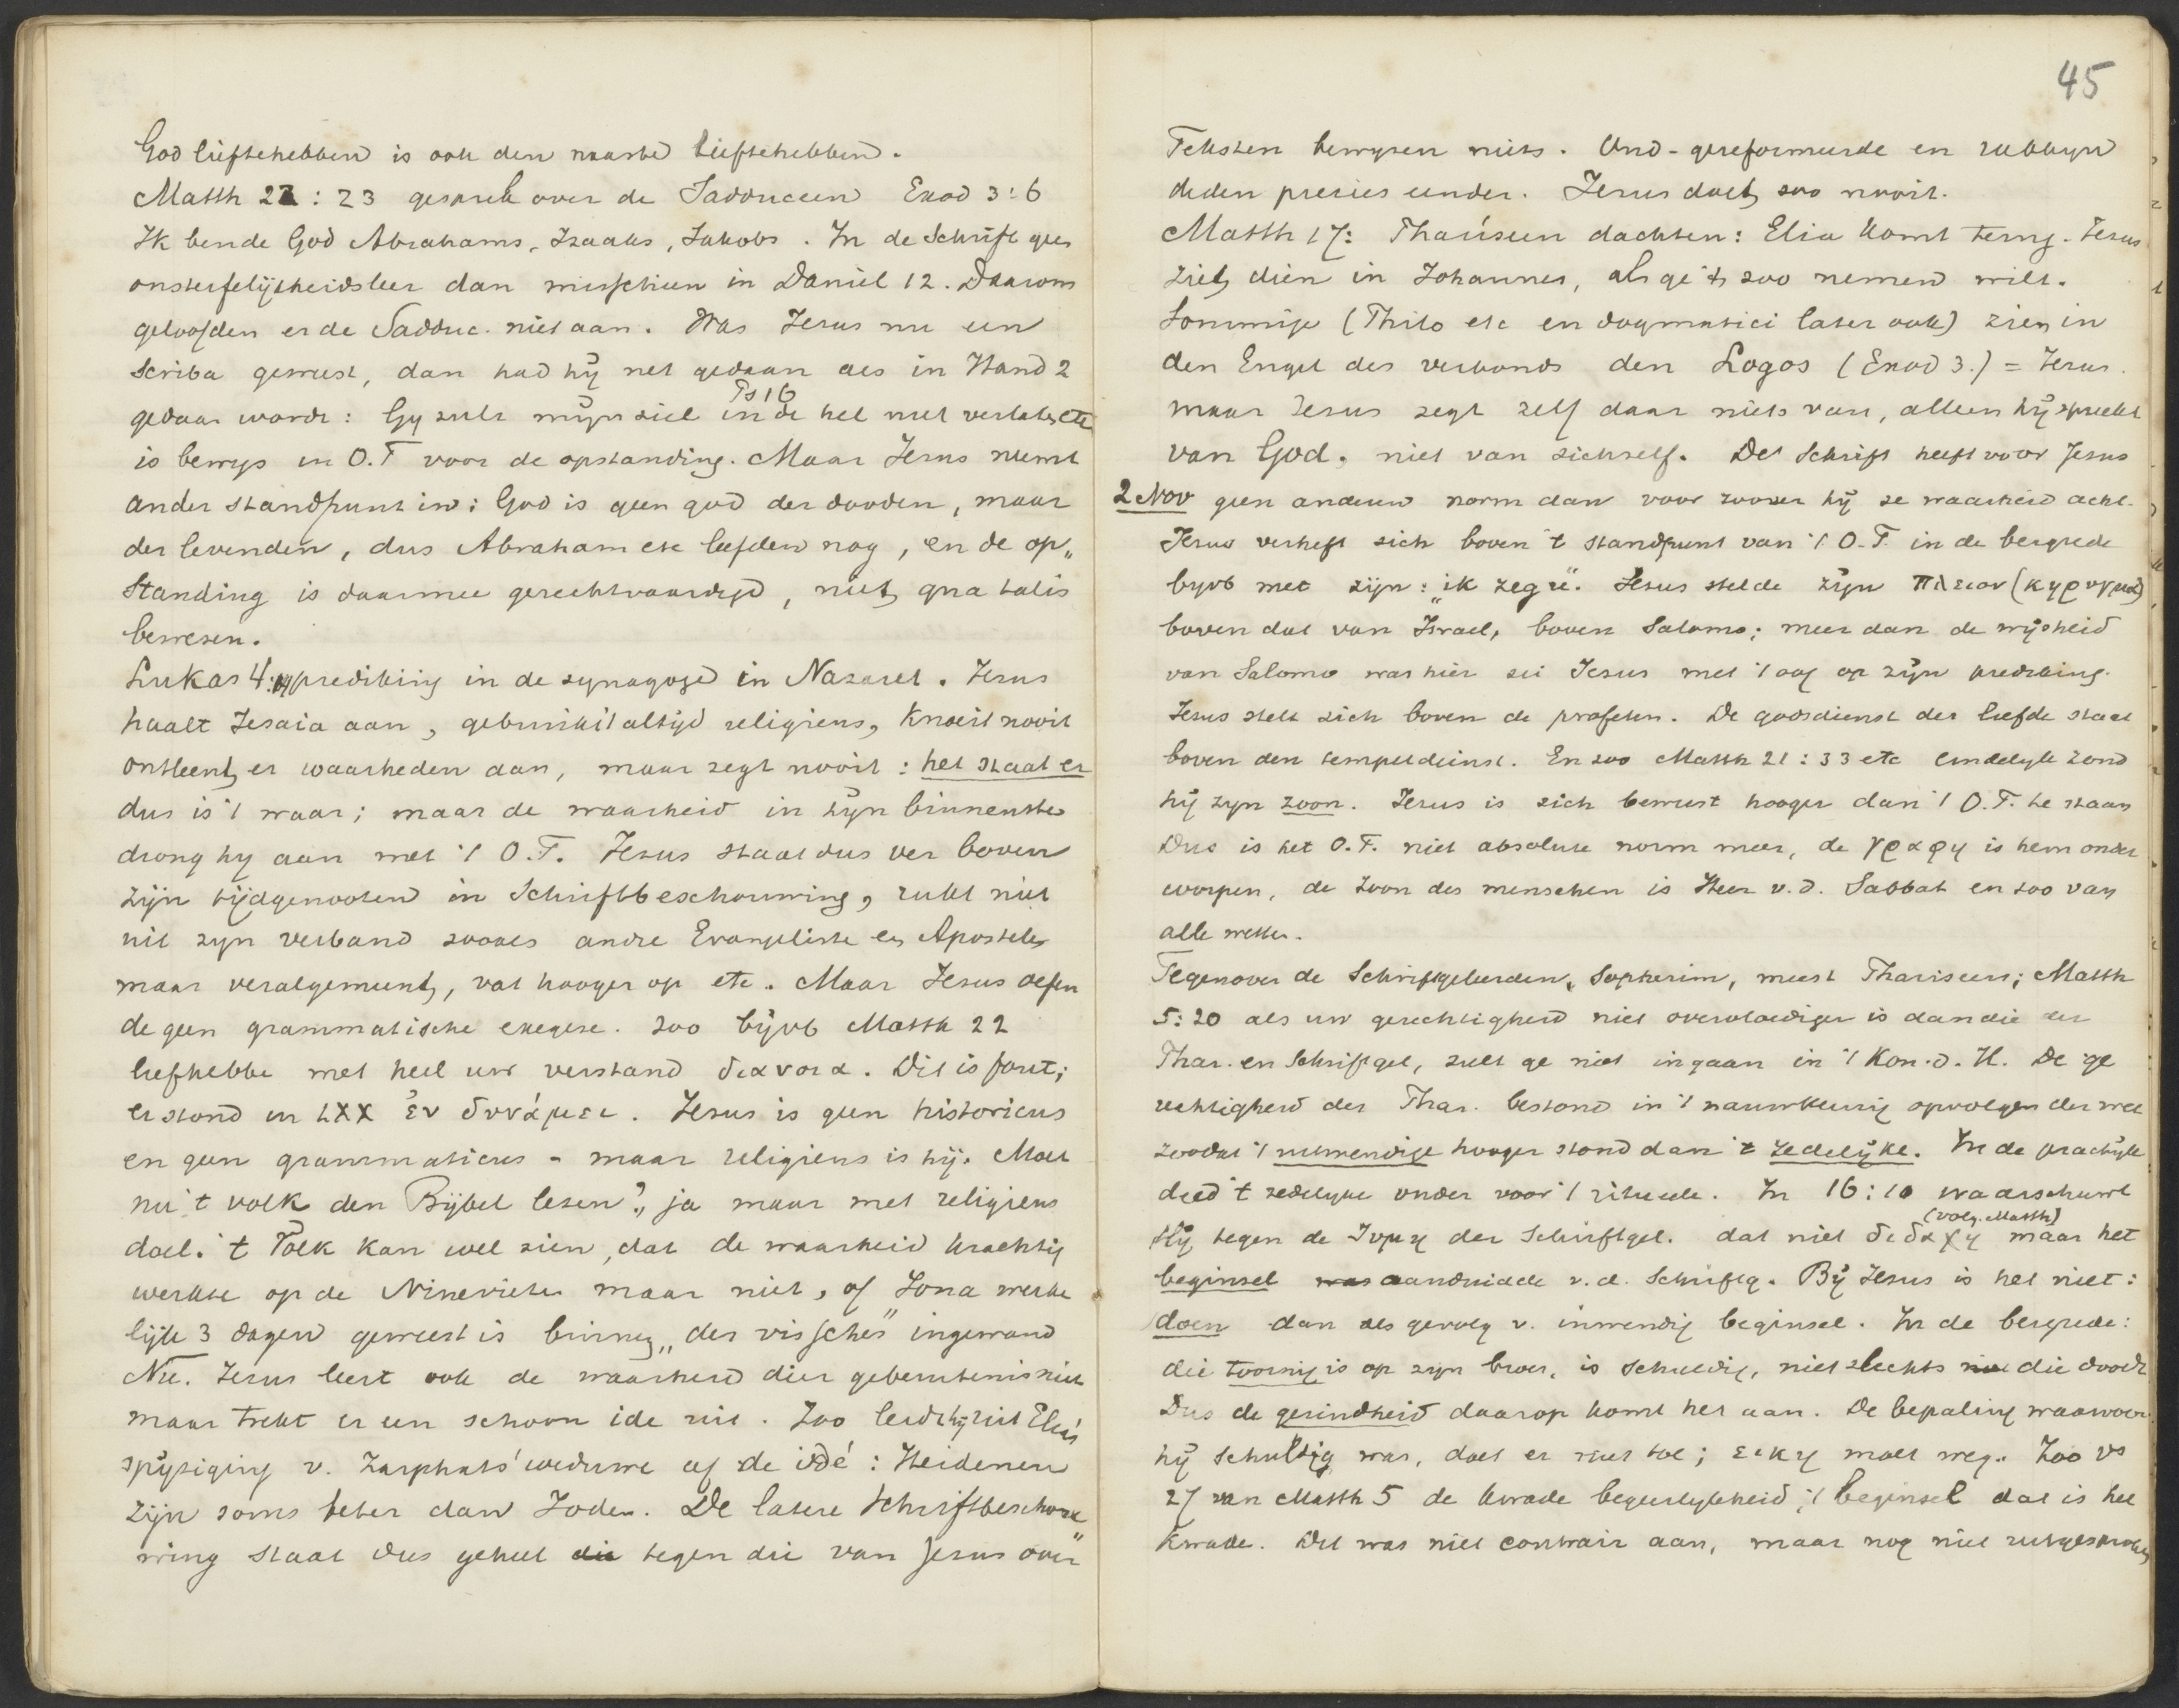 God liefhebben is ook den naaste liefhebben.
Matth 22 : 23 gesprek over de Sadduceen Exod 3:6
Ik ben de God Abrahams, Izaaks, Jakobs. In de Schrift geen
onsterfelijkheidsleer dan misschien in Daniel 12. Daarom
geloofden er de Sadduc. niet aan. Was Jezus nu een
scriba geweest, dan had hij net gedaan als in Hand 2
Ps 16
gedaan wordt: Gy zult mijn ziel in de hel niet verlaten etc
is bewys in O.T voor de opstanding. Maar Jezus neemt
ander standpunt in: God is geen god der dooden, maar
der levenden, dus Abraham etc leefden nog, en de op„
standing is daarmee gerechtvaardigd, niet qua talis
bewezen.
Lukas 4:19 prediking in de synagoge in Nazaret. Jezus
haalt Jesaia aan, gebruikt 't altijd religieus, knoeit nooit
ontleent er waarheden aan, maar zegt nooit: het staat er
dus is 't waar; maar de waarheid in zijn binnenste
drong hy aan met 't O.T. Jezus staat dus ver boven
zijn tijdgenooten in Schriftbeschouwing, rukt niet
uit zyn verband zooals andre Evangeliste en Apostelen
maar veralgemeent, vat hooger op etc. Maar Jezus oefen
de geen grammatische exegese. Zoo bijvb Matth 22
liefhebbe met heel uw verstand διανοια. Dit is fout;
er stond in LXX ἐν δυνάμει. Jezus is geen historicus
en geen grammaticus - maar religieus is hij. Moet
nu 't volk den Bijbel lezen? ja maar met religieus
doel. 't Volk kan wel zien, dat de waarheid krachtig
werkte op de Ninevieten maar niet, of Jona werke
lijk 3 dagen geweest is binnen „des vissches" ingewand
Nu. Jezus leert ook de waarheid dier gebeurtenis niet
maar trekt er een schoon ide uit. Zoo leidt hij uit Elia's
spijziging v. Zarphats' weduwe af de idé: Heidenen
zijn soms beter dan Joden. De latere Schriftbeschou
wing staat dus geheel die tegen die van Jezus over
45
Teksten bewyzen niets. Oud-gereformeerde en rabbyn
deden precies eender. Jezus doet zoo nooit.
Matth 17: Phariseen dachten: Elia komt terug. Jezus
ziet dien in Johannes, als ge 't zoo nemen wilt.
Sommige (Philo etc en dogmatici later ook) zien in
den Engel des verbonds den Logos (Exod 3.) = Jezus.
maar Jezus zegt zelf daar niets van, alleen hij spreekt
van God, niet van zichzelf. De Schrift heeft voor Jezus
2 Nov geen anderen norm dan voor zoover hij ze waarheid acht.
Jezus verheft zich boven 't standpunt van 't O.T. in de bergrede
byvb met zijn: „ik zeg u". Jezus stelde zijn πλειον (κηρυγμα)
boven dat van Israel, boven Salomo; meer dan de wijsheid
van Salomo was hier zei Jezus met 't oog op zijn prediking.
Jezus stelt zich boven de profeten. De godsdienst der liefde staat
boven den tempeldienst. En zoo Matth 21 : 33 etc eindelyk zond
hij zyn zoon. Jezus is zich bewust hooger dan 't O.T. te staan
Dus is het O.T. niet absolute norm meer, de γραφη is hem onder
worpen, de Zoon des menschen is Heer v.d. Sabbat en zoo van
alle wetten.
Tegenover de Schriftgeleerden, Sopherim, meest Phariseers; Matth
5:20 als uw gerechtigheid niet overvloediger is dan die der
Phar. en Schriftgel, zult ge niet ingaan in 't Kon. d. H. De ge
rechtigheid der Phar. bestond in 't nauwkeurig opvolgen der wet
zoodat 't uitwendige hooger stond dan 't zedelijke. In de practijk
deed 't zedelyke onder voor 't ritueele. In 16:10 waarschuwt
(volg. Matth)
Hij tegen de ζυμη der Schriftgel. dat niet διδαχη maar het
beginsel was aanduidde v.d. Schriftg. Bij Jezus is het niet:
doen dan als gevolg v. inwendig beginsel. In de bergrede:
die toornig is op zyn broer, is schuldig, niet slechts die doodt
Dus de gezindheid daarop komt het aan. De bepaling waarvoor
hij schuldig was, doet er niet toe; εικη moet weg. Zoo vs
27 van Matth 5 de kwade begeerlykheid, 't beginsel dat is het
kwade. Dit was niet contrair aan, maar nog niet uitgesproken